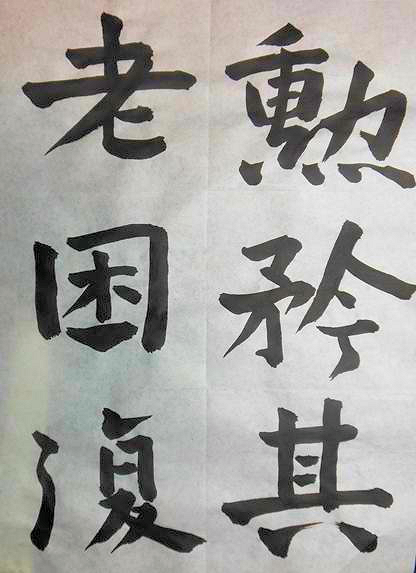 勲矜其
老困復